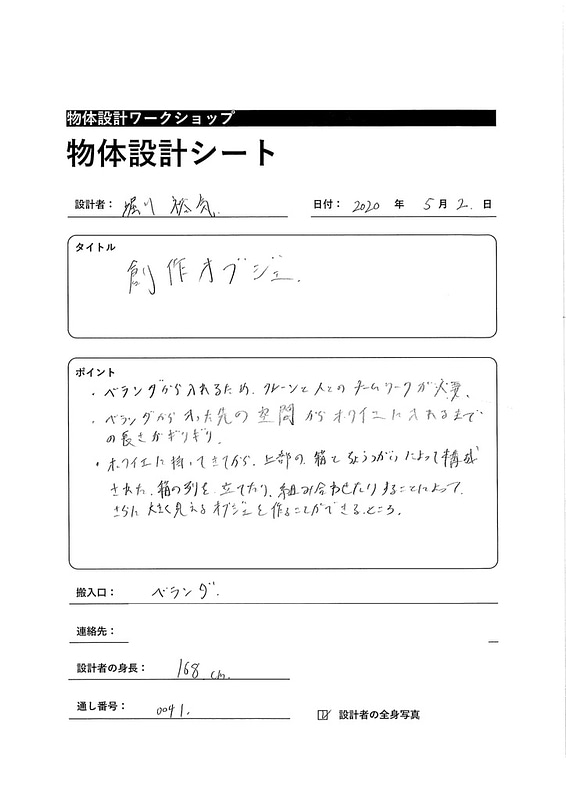 物体設計ワークショップ
物体設計シート
設計者： 堀川 裕気.
日付： 2020 年 5月 2. 日
タイトル
創作オブジェ.
ポイント
・ベランダから入れるため、クレーンと人とのチームワークが必要、
・ベランダから入った先の空間からホワイエに入れるまで
の長さがギリギリ.
・ホワイエに持ってきてから、上部の箱とちょうつがいによって構成
された、箱の列を立てたり、組み合わせたりすることによって、
さらに大きく見えるオブジェを作ることができるところ。
搬入口： ベランダ.
連絡先：
設計者の身長： 168 cm.
通し番号： 0041.
設計者の全身写真